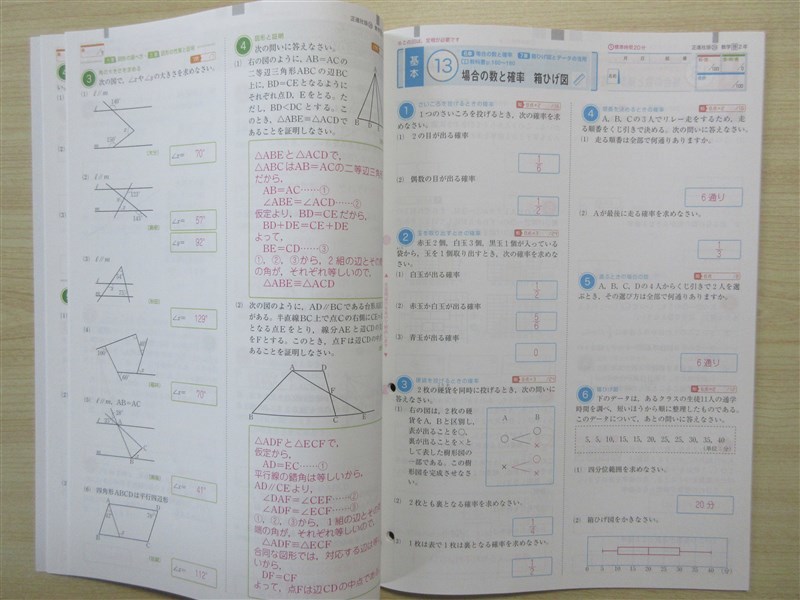 3
次の図で、∠xや∠yの大きさを求めなさい。
(1) ℓ∥m
∠x= 70°
(2) ℓ∥m
∠x= 37°
∠y= 92°
(3) ℓ∥m
∠x= 129°
(4)
∠x= 70°
(5) ℓ∥m, AB=AC
∠x= 41°
(6) 四角形ABCDは平行四辺形
∠x= 112°
4 図形と証明
次の問いに答えなさい。
(1) 右の図のように、AB=ACの
二等辺三角形ABCの辺BC
上に、BD=CEとなるように
それぞれ点D、Eをとる。た
だし、BD<DCとする。こ
のとき、△ABE≡△ACDで
あることを証明しなさい。
△ABEと△ACDで、
△ABCはAB=ACの二等辺三角
だから、
AB=AC……①
∠ABE=∠ACD……②
仮定より、BD=CEだから、
BD+DE=CE+DE
よって、
BE=CD……③
①、②、③から、2組の辺とその
の角が、それぞれ等しいので、
△ABE≡△ACD
(2) 次の図のように、AD∥BCである台形
がある。半直線BC上で点Cの右側に
となる点Eをとり、線分AEと辺CD
をFとする。このとき、点Fは辺CDの
あることを証明しなさい。
A D F B C E
△ADFと△ECFで、
仮定から、
AD=EC……①
平行線の錯角は等しいから、
AD∥CEより、
∠DAF=∠CEF……②
∠ADF=∠ECF……③
①、②、③から、1組の辺とその
端の角が、それぞれ等しいので、
△ADF≡△ECF
合同な図形では、対応する辺は
いから、
DF=CF
よって、点Fは辺CDの中点である
基本
13
場合の数と確率 箱ひげ図
1 さいころを投げるときの確率
1つのさいころを投げるとき、次の確率を求
めなさい。
(1) 2の目が出る確率
1/6
(2) 偶数の目が出る確率
1/2
2 玉を取り出すときの確率
赤玉2個、白玉3個、黒玉1個が入っている
袋から、玉を1個取り出すとき、次の確率を求めなさい。
(1) 白玉が出る確率
1/2
(2) 赤玉か白玉が出る確率
5/6
(3) 青玉が出る確率
0
3 硬貨を投げるときの確率
2枚の硬貨を同時に投げるとき、次の問いに
答えなさい。
(1) 右の図は、2枚の硬
貨をA、Bと区別し、
表が出ることを○、
裏が出ることを×と
して表した樹形図の
一部である。この樹
形図を完成させなさ
い。
A B
(2) 2枚とも裏となる確率を求めなさい。
1/4
(3) 1枚は表で1枚は裏となる確率を求めなさい。
1/2
4 順番を決めるときの確率
A、B、Cの3人でリレー走をするため、走
る順番をくじ引きで決める。次の問いに答えなさい。
(1) 走る順番は全部で何通りありますか。
6通り
(2) Aが最後に走る確率を求めなさい。
1/3
5
A、B、C、Dの4人からくじ引きで2人を選
ぶとき、その選び方は全部で何通りありますか。
6通り
6 箱ひげ図
下のデータは、あるクラスの生徒11人の通学
時間を調べ、短いほうから順に整理したものである。
このデータについて、あとの問いに答えなさい。
5, 5, 10, 15, 15, 20, 25, 25, 30, 35, 40
(単位:分)
(1) 四分位範囲を求めなさい。
20分
(2) 箱ひげ図をかきなさい。
0 5 10 15 20 25 30 35 40 (分)